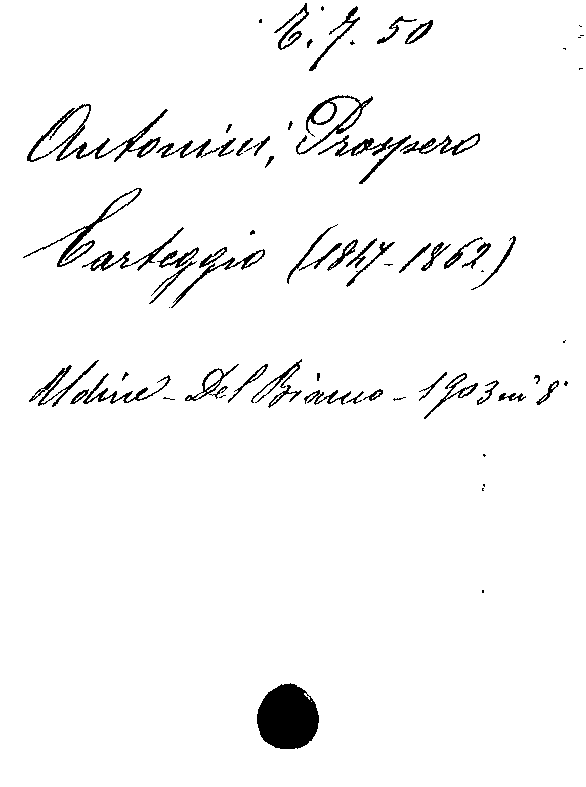 7. 50
Antonini, Prospero
Carteggio (1847-1862)
Udine - Del Bianco - 1903 in 8º